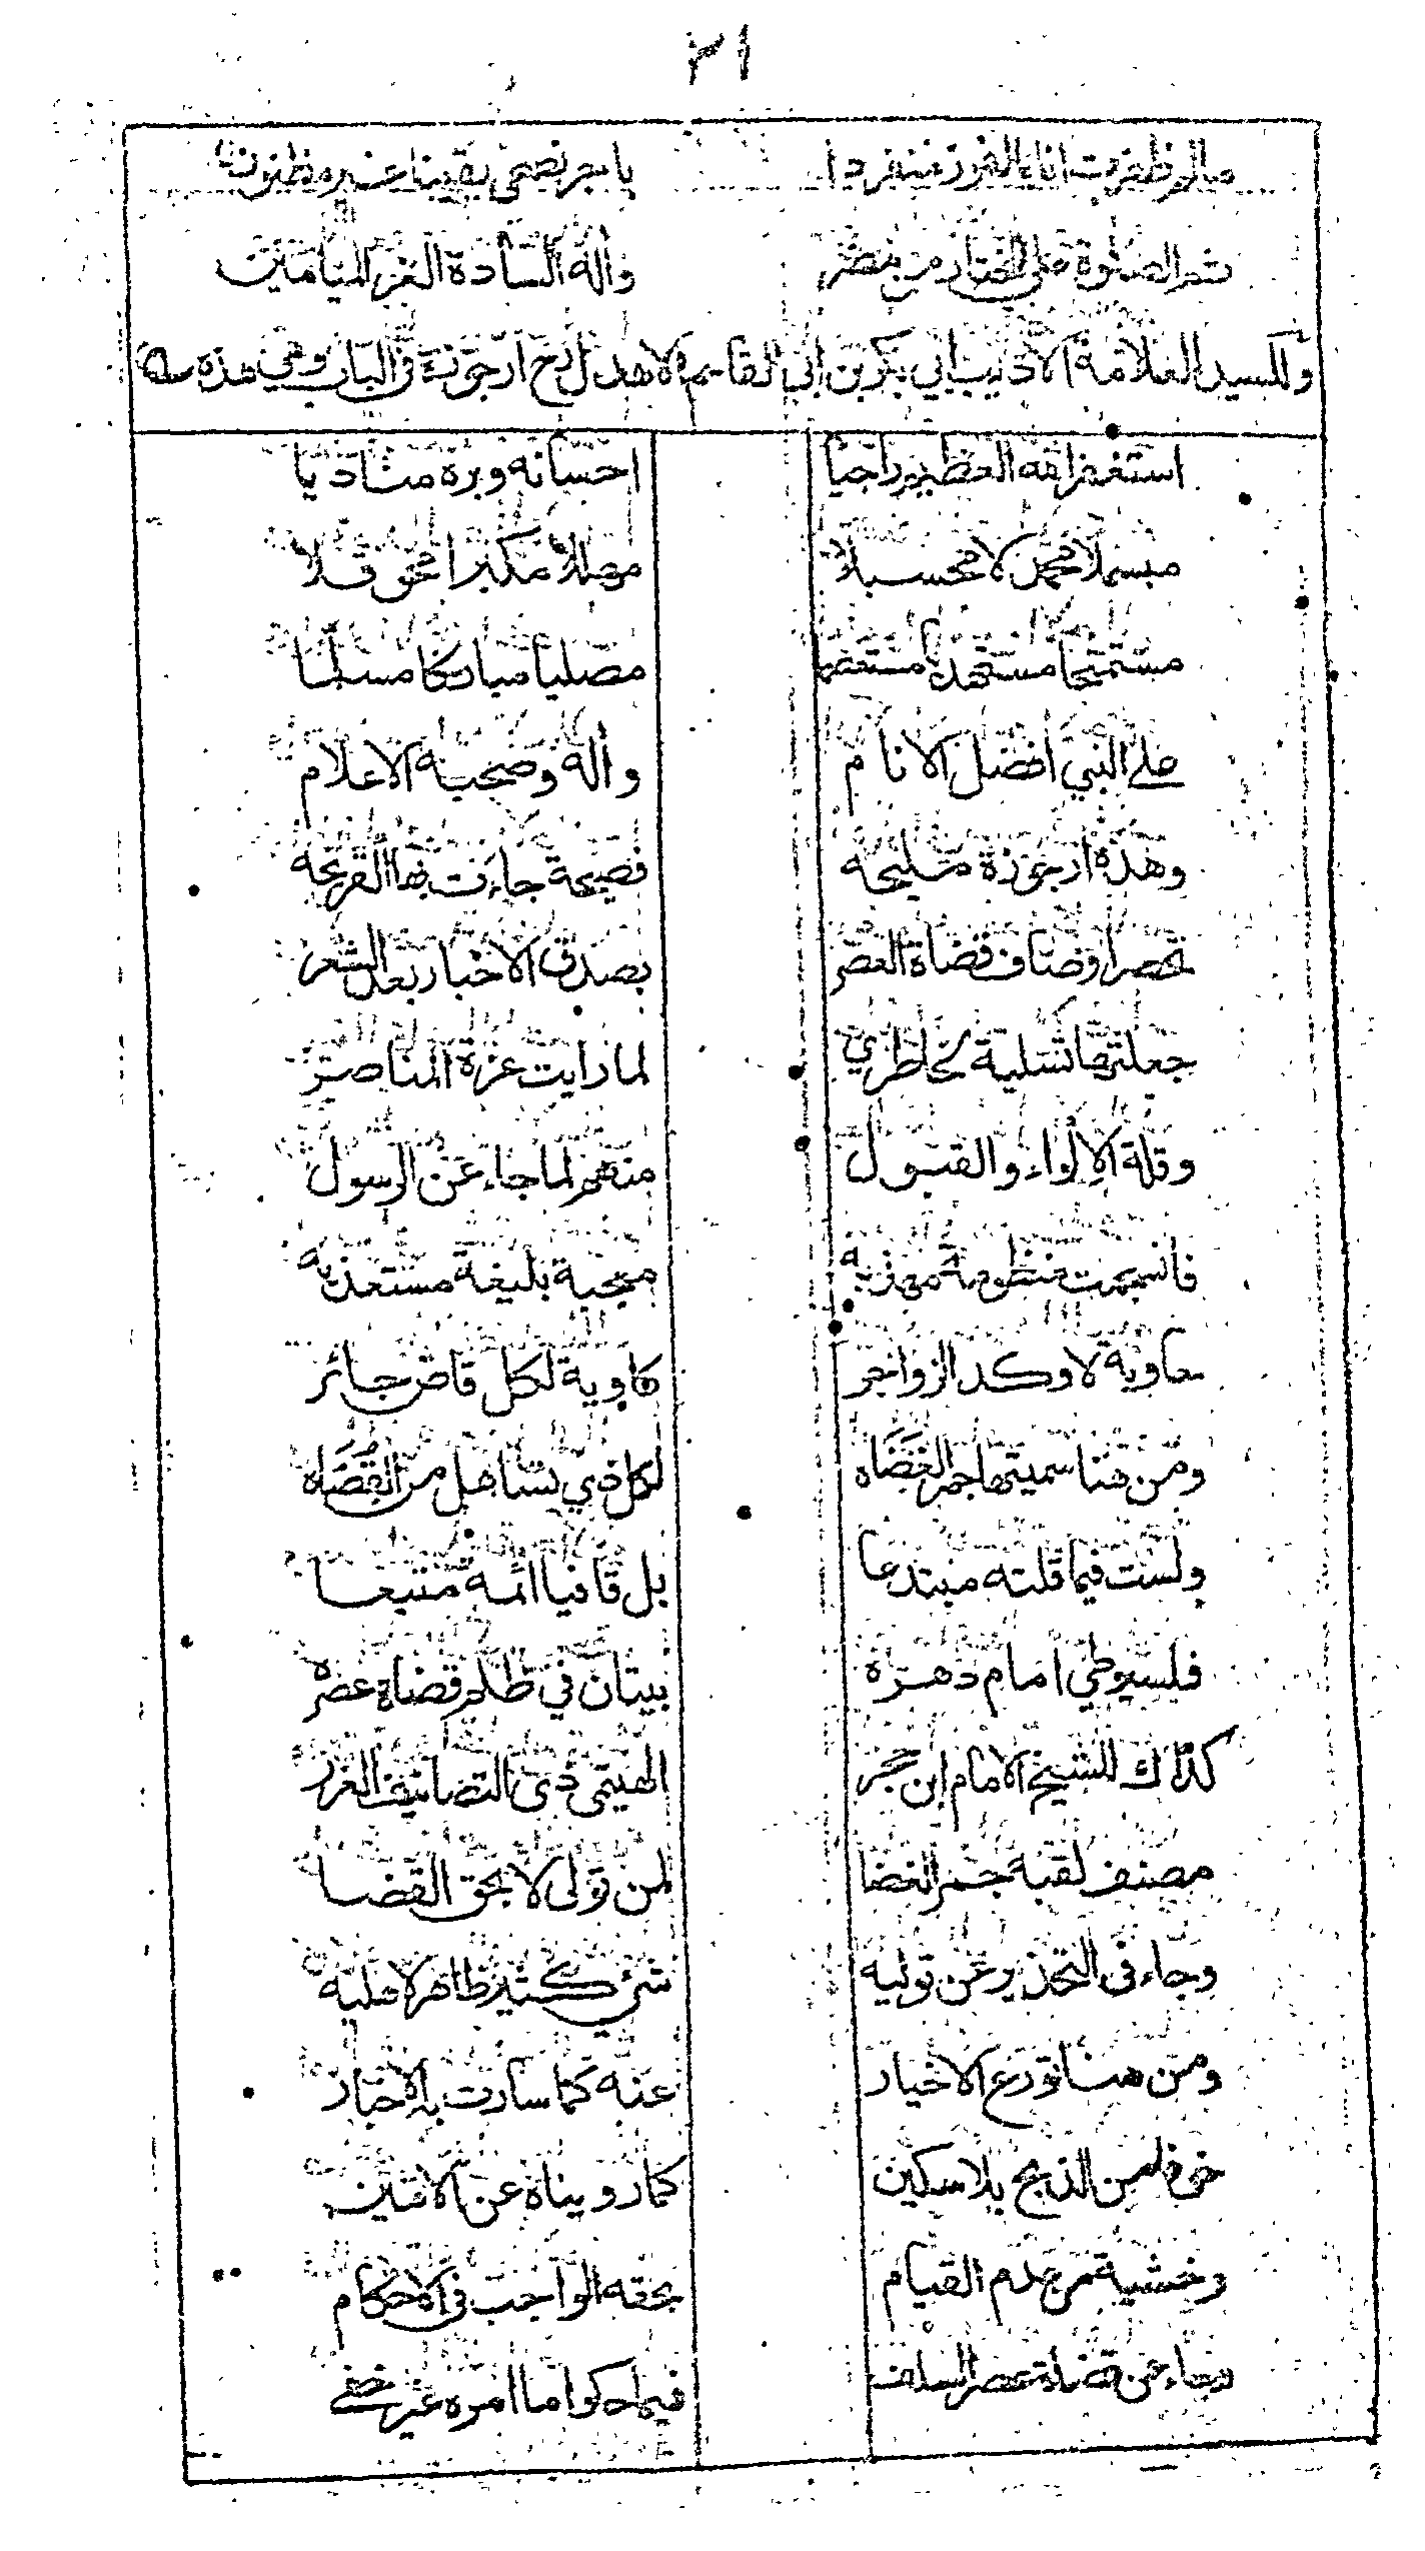 ٢١
ثم الصلوة على المختار من مضر وآله السادة الغر الميامين
وللسيد العلامة الاديب ابي بكر بن ابي القاسم الاهدل رح ارجوزة في الباب وهي هذه
استغفر الله العظيم راجيا احسانه وبره مناديا
مبسملا محمدلا محسبلا مهللا مكبرا محوقلا
مستميحا مستهديا مصليا مباركا مسلما
على النبي افضل الانام وآله وصحبه الاعلام
وهذه ارجوزة مليحه فصيحة جاءت بها القريحه
تحصر اوصاف قضاة العصر بصدق الاخبار بعد الشعر
جعلتها تسلية لخاطري لما رايت عزة المناصر
وقلة الإلواء والقبول منهم لما جاء عن الرسول
فانسجمت منظومة مهذبه معجبة بليغة مستعذبه
حاوية لاوكد الزواجر كاوية لكل قاض جائر
ومن هنا سميتها جمر الغضاه لكل ذي تساهل من القضاه
ولست فيما قلته مبتدعا بل قافيا ائمة متبعا
فلسيوطي امام دهره بيتان في ظلم قضاة عصره
كذاك للشيخ الامام ابن حجر الهيتمي ذي التصانيف الغرر
مصنف لقبه جمر الغضا لمن تولى لا بحق القضا
وجاء في التحذير عن توليه شئ كثير ظاهر لاهليه
ومن هنا تورع الاخيار عنه كما سارت به الاخبار
خوفا من الذبح بلا سكين كما رويناه عن الامين
وخشية من عدم القيام بحقه الواجب في الاحكام
وجاء عن قضاة عصر السلف فيما حكوا ما امره غير خفي